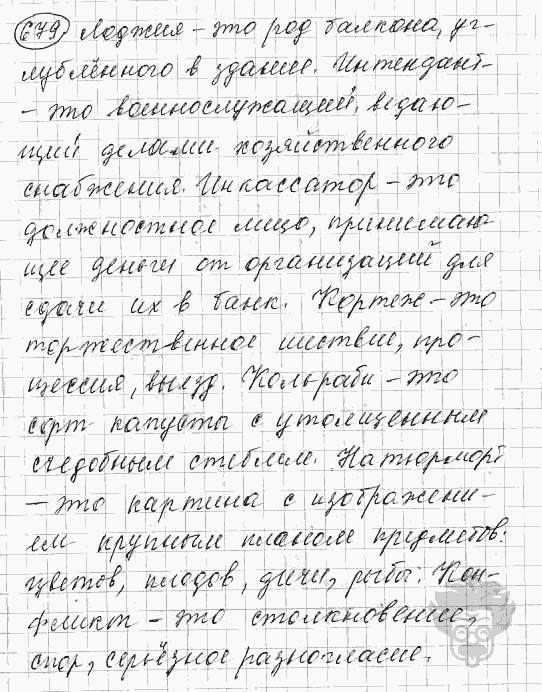 679. Лоджия – это род балкона, уг-
лублённого в здание. Интендант-
– это военнослужащий, ведаю-
щий делами хозяйственного
снабжения. Инкассатор – это
должностное лицо, принимаю-
щее деньги от организаций для
сдачи их в банк. Кортеж – это
торжественное шествие, про-
цессия, выезд. Кольраби – это
сорт капусты с утолщенным
съедобным стеблем. Натюрморт
– это картина с изображени-
ем крупным планом предметов:
цветов, плодов, дичи, рыбы. Кон-
фликт – это столкновение,
спор, серьёзное разногласие.